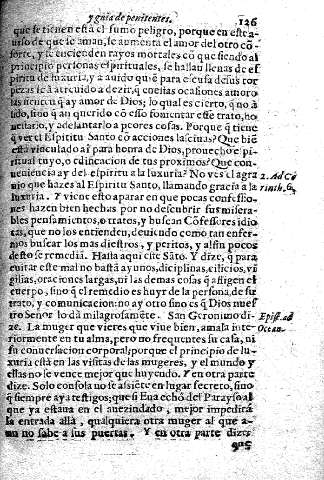 y guia de penitentes. 126
que se tienen està el sumo peligro, porque en esta
uiso de que se aman, se aumenta el amor del otro cõ-
sorte, y se encienden rayos mortales cõ que siendo al
principio personas espirituales, se hallan llenas de es
piritu de luxuria, y à auido quiẽ para escusa desus tor
pezas se à atreuido a dezir, q̃ en estas ocasiones amoro
sas tienen q̃ ay amor de Dios; lo qual es cierto, q̃ no à
sido, sino q̃ an querido cõ esso fomentar este trato, no
euitarlo, y adelantarlo a peores cosas. Porque q̃ tiene
q̃ ver el Espiritu Santo cõ acciones lasciuas? Que biẽ
està vinculado aĩ para honra de Dios, prouecho espi-
ritual tuyo, o edificacion de tus proximos? Que con-
ueniencia ay del espiritu a la luxuria? No ves el agra
nio que hazes al Espiritu Santo, llamando gracia a la
luxuria. Y viene esto aparar en que pocas confessio-
nes hazen bien hechas por no descubrir sus misera-
bles pensamientos, o tratos, y buscan Cõfessores idio
tas, que no los entienden, deuiendo como tan enfer-
mos buscar los mas diestros, y peritos, y assin pocos
desto se remediã. Hasta aqui este Sãto. Y dize, q̃ para
euitar este mal no bastã ayunos, disciplinas, cilicios, vi
gilias, oraciones largas, ni las demas cosas q̃ afligen el
cuerpo, sino q̃ el remedio es huyr de la persona, de su
trato, y comunicacion: no ay otro sino es q̃ Dios nues
tro Señor lo dà milagrosamẽte. San Geronimo di-
ze. La muger que vieres que viue bien, amala inte-
riormente en tu alma, pero no frequentes su casa, ni
su conuersacion corporal; porque el principio de lu-
xuria està en las visitas de las mugeres, y el mundo y
ellas no se vence mejor que huyendo. Y en otra parte
dize. Solo con sola no se assiẽte en lugar secreto, sino
q̃ siempre aya testigos; que si Eua echò del Parayso al
que ya estaua en el auezindado, mejor impedirà
la entrada allà, qualquiera otra muger al que a-
un no sabe a sus puertas. Y en otra parte dize:
2. Ad Co
rinth. 6.
Epist. ad
Ocean.